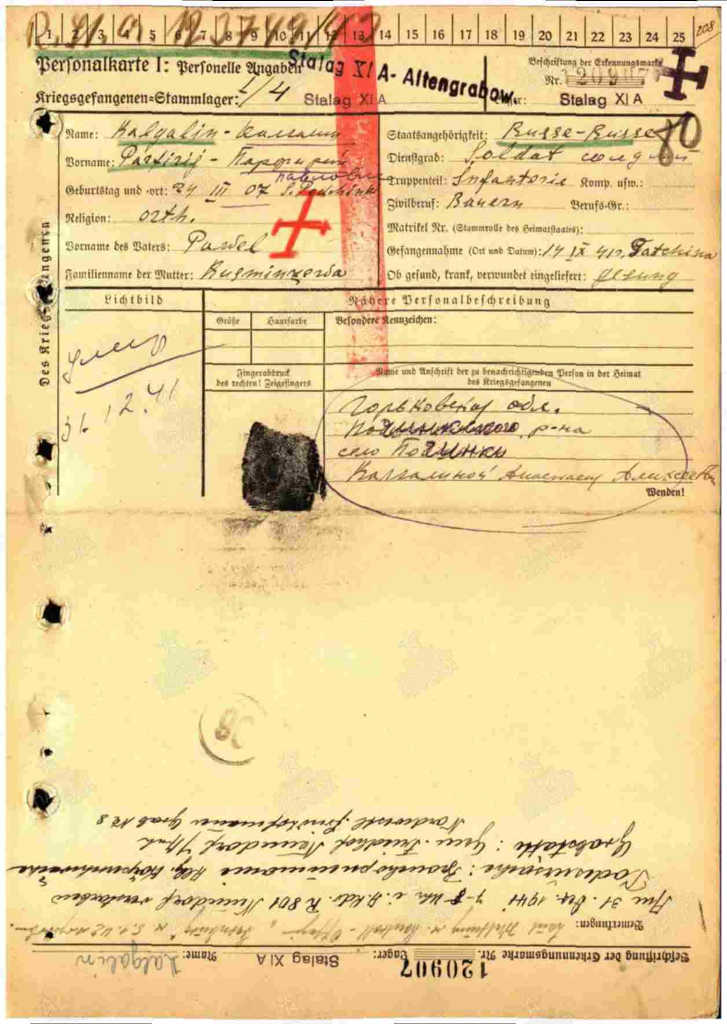 1 2 3 4 5 6 7 8 9 10 11 12 13 14 15 16 17 18 19 20 21 22 23 24 25
208
Personalkarte I: Personelle Angaben
Stalag XI A - Altengrabow.
Beschriftung der Erkennungsmarke
Nr. 120907
Kriegsgefangenen=Stammlager: Stalag XI A
Lager: Stalag XI A
Des Kriegsgefangenen
Name: Kalgalin - Калгалин
Vorname: Parfirij - Парфирий
Павлович
Geburtstag und -ort: 24 III 07 S.
Religion: orth.
Vorname des Vaters: Pawel
Familienname der Mutter:
Staatsangehörigkeit: Russe - Russe
80
Dienstgrad: Soldat солдат
Truppenteil: Infanterie Komp. usw.:
Zivilberuf: Bauern Berufs-Gr.:
Matrikel Nr. (Stammrolle des Heimatstaates):
Gefangennahme (Ort und Datum): 14 IX 41, Gatchina
Ob gesund, krank, verwundet eingeliefert: gesung
Lichtbild
умер
31.12.41
Nähere Personalbeschreibung
Größe Haarfarbe Besondere Kennzeichen:
Fingerabdruck
des rechten! Zeigefingers
Name und Anschrift der zu benachrichtigenden Person in der Heimat
des Kriegsgefangenen
Горьковская обл.
Починковского р-на
село Починки
Калгалиной Анастасии Алексеевне
Wenden!
98
Beschriftung der Erkennungsmarke Nr. 120907 Lager: Stalag XI A Name: Kalgalin
Bemerkungen:
Am 31. Dez. 1941 7-8 Uhr i. A.Kdo. R 801 Neindorf verstorben
Todesursache: Bronchopneumonie
Grabstätte: Gem. Friedhof Neindorf
Grab Nr. 8